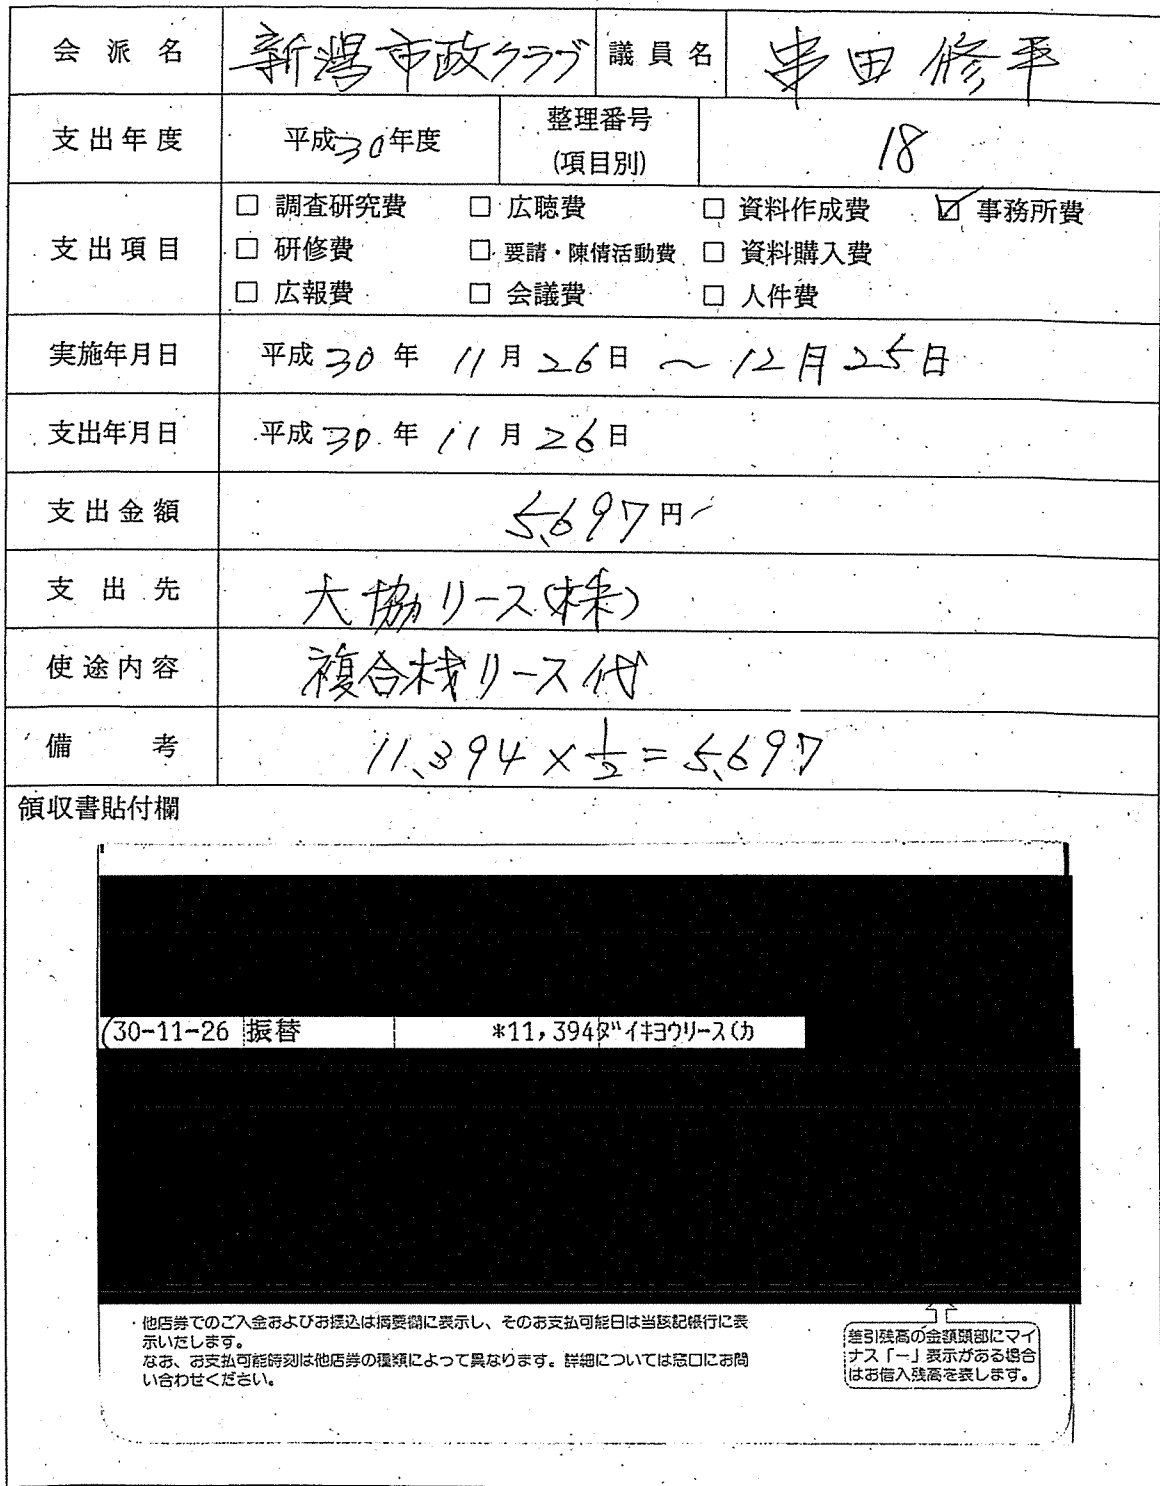 会派名 新潟市政クラブ 議員名 串田修平
支出年度 平成30年度 整理番号(項目別) 18
支出項目
□ 調査研究費 □ 広聴費 □ 資料作成費 ☑ 事務所費
□ 研修費 □ 要請・陳情活動費 □ 資料購入費
□ 広報費 □ 会議費 □ 人件費
実施年月日 平成30年11月26日～12月25日
支出年月日 平成30年11月26日
支出金額 5,697円
支出先 大協リース(株)
使途内容 複合材リース代
備考 11,394×1/2=5,697
領収書貼付欄
30-11-26 振替 *11,394 ダイキョウリース(カ
・他店券でのご入金およびお振込は摘要欄に表示し、そのお支払可能日は当該記帳行に表
示いたします。
なお、お支払可能時刻は他店券の種類によって異なります。詳細については窓口にお問
い合わせください。
差引残高の金額頭部にマイ
ナス「ー」表示がある場合
はお借入残高を表します。